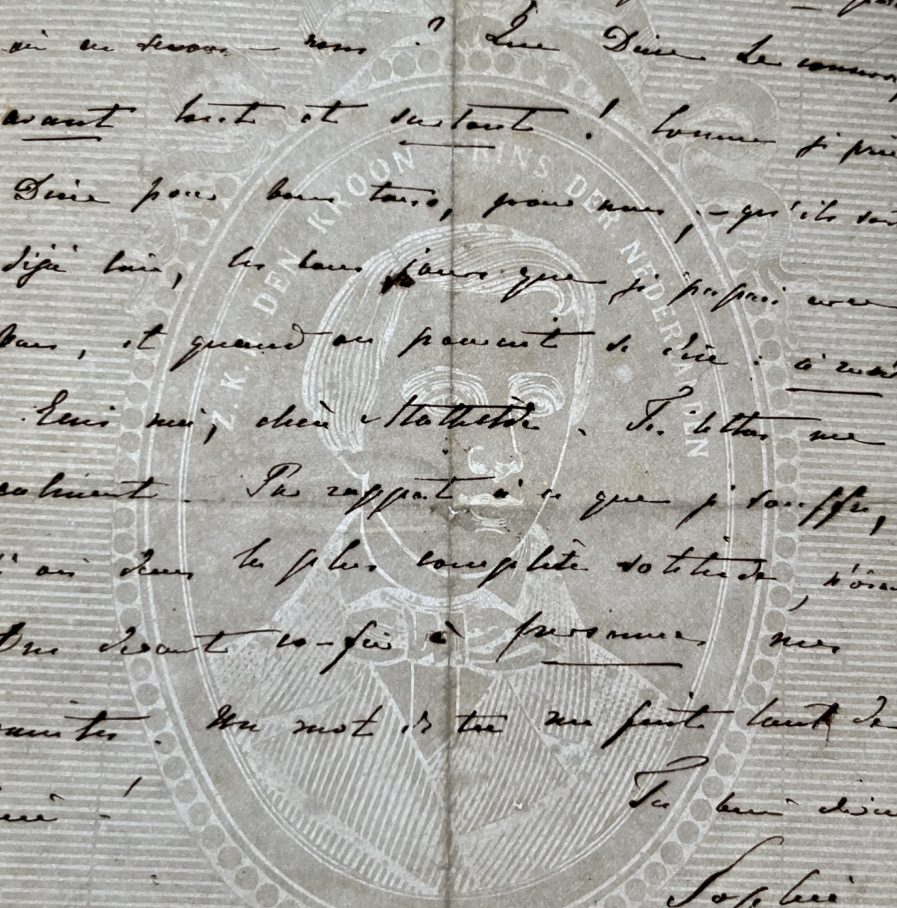 ? Que Dieu te
avant tout et surtout ! Comme je prie
Dieu pour vous tous, pour nous, qu'ils sont
déjà loin, les bons jours que j'ai passé avec
vous, et quand on pouvait se dire : à
Ecris moi, chère Mathilde. Tes lettres me
Par rapport à ce que je souffre,
dans la plus complète solitude, n'osant
devant confier à personne mes
Un mot de toi me fait tant de
! Ta bien
Sophie
Z.K.H. DEN KROONPRINS DER NEDERLANDEN